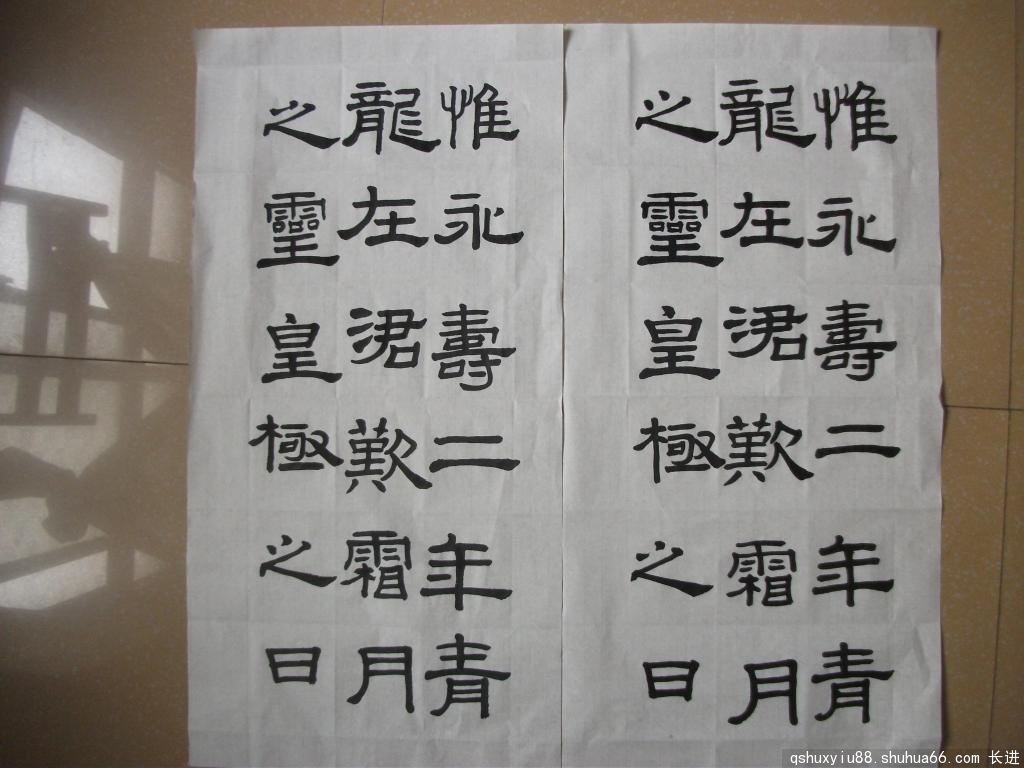 惟永壽二年青
龍在涒歎霜月
之靈皇極之日
惟永壽二年青
龍在涒歎霜月
之靈皇極之日
qshuxyiu88.shuhua66.com 长进